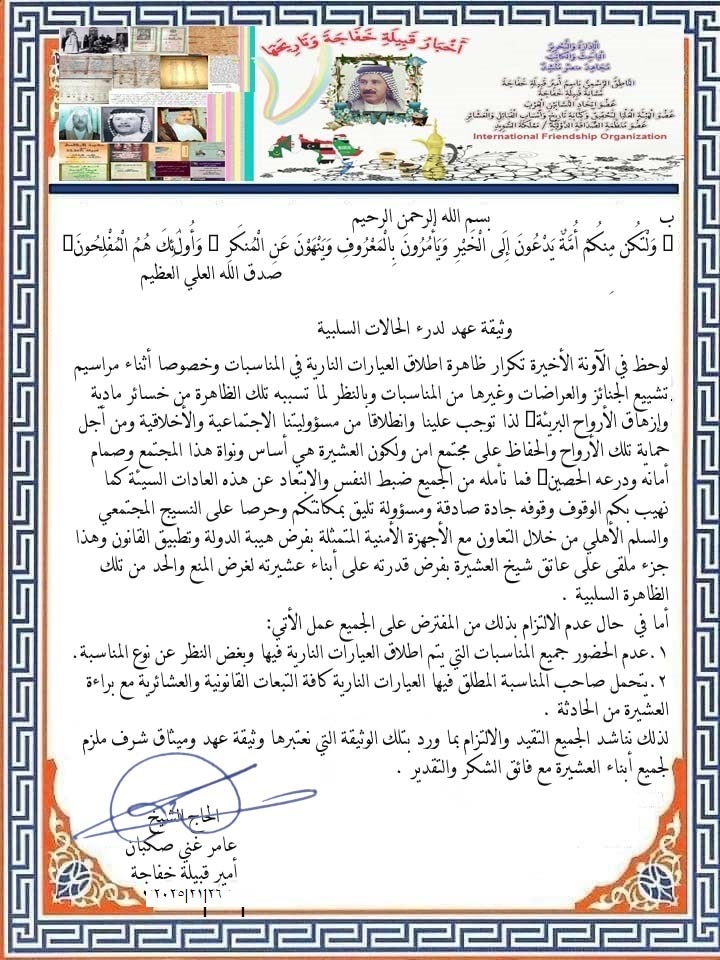 أخبار قبيلة خفاجة وتاريخها
الإدارة والتحرير
الباحث والكاتب
مجاهد منعثر منشد
الناطق الرسمي باسم أمير قبيلة خفاجة
نسابة قبيلة خفاجة
عضو اتحاد النسابين العرب
عضو الهيئة العليا لتحقيق وكتابة تاريخ وأنساب القبائل والعشائر
عضو منظمة الصداقة الدولية / مملكة السويد
International Friendship Organization
ب بسم الله الرحمن الرحيم
وَلْتَكُن مِنكُم أُمَّةٌ يَدْعُونَ إِلَى الْخَيْرِ وَيَأْمُرُونَ بِالْمَعْرُوفِ وَيَنْهَوْنَ عَنِ الْمُنكَرِ وَأُولَئِكَ هُمُ الْمُفْلِحُونَ
صدق الله العلي العظيم
وثيقة عهد لدرء الحالات السلبية
لوحظ في الآونة الأخيرة تكرار ظاهرة اطلاق العيارات النارية في المناسبات وخصوصا أثناء مراسيم
تشييع الجنائز والعراضات وغيرها من المناسبات وبالنظر لما تسببه تلك الظاهرة من خسائر مادية
وإزهاق الأرواح البريئة لذا توجب علينا وانطلاقا من مسؤوليتنا الاجتماعية والأخلاقية ومن أجل
حماية تلك الأرواح والحفاظ على مجتمع امن ولكون العشيرة هي أساس ونواة هذا المجتمع وصمام
أمانه ودرعه الحصين فما نأمله من الجميع ضبط النفس والابتعاد عن هذه العادات السيئة كما
نهيب بكم الوقوف وقوفه جادة صادقة ومسؤولة تليق بمكانتكم وحرصا على النسيج المجتمعي
والسلم الأهلي من خلال التعاون مع الأجهزة الأمنية المتمثلة بفرض هيبة الدولة وتطبيق القانون وهذا
جزء ملقى على عاتق شيخ العشيرة بفرض قدرته على أبناء عشيرته لغرض المنع والحد من تلك
الظاهرة السلبية .
أما في حال عدم الالتزام بذلك من المفترض على الجميع عمل الأتي:
١.عدم الحضور جميع المناسبات التي يتم اطلاق العيارات النارية فيها وبغض النظر عن نوع المناسبة.
٢.يتحمل صاحب المناسبة المطلق فيها العيارات النارية كافة التبعات القانونية والعشائرية مع براءة
العشيرة من الحادثة .
لذلك نناشد الجميع التقيد والالتزام بما ورد بتلك الوثيقة التي نعتبرها وثيقة عهد وميثاق شرف ملزم
لجميع أبناء العشيرة مع فائق الشكر والتقدير .
الحاج الشيخ
عامر غني صكبان
أمير قبيلة خفاجة
٢٠٢٥/٢١/٢٦